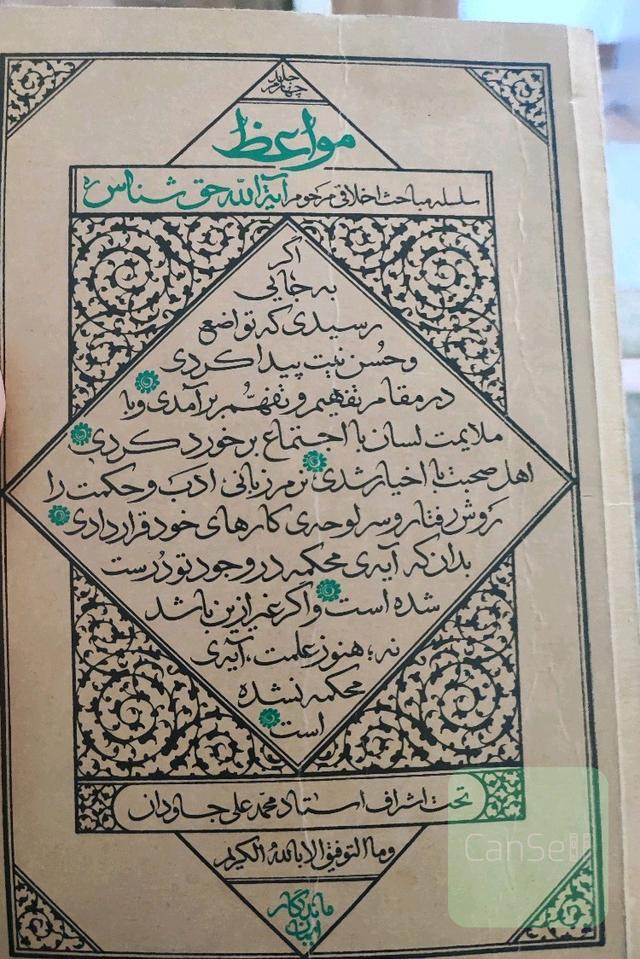 جلد
چهارم
مواعظ
سلسله مباحث اخلاقی مرحوم آیة الله حق شناس ره
اگر
به جایی
رسیدی که تواضع
و حُسن نیت پیدا کردی
در مقام تفهیم و تفهّم برآمدی و با
ملایمت لسان با اجتماع برخورد کردی
اهل صحبت با اخیار شدی نرم زبانی ادب و حکمت را
روش رفتار و سرلوحه‌ی کارهای خود قرار دادی
بدان که آیه‌ی محکمه در وجود تو درست
شده است و اگر غیر ازین باشد
نه؛ هنوز علمت، آیه‌ی
محکمه نشده
است
تحت اشراف استاد محمد علی جاودان
وما التوفیق الا بالله الکریم
ماندگار
CanSell